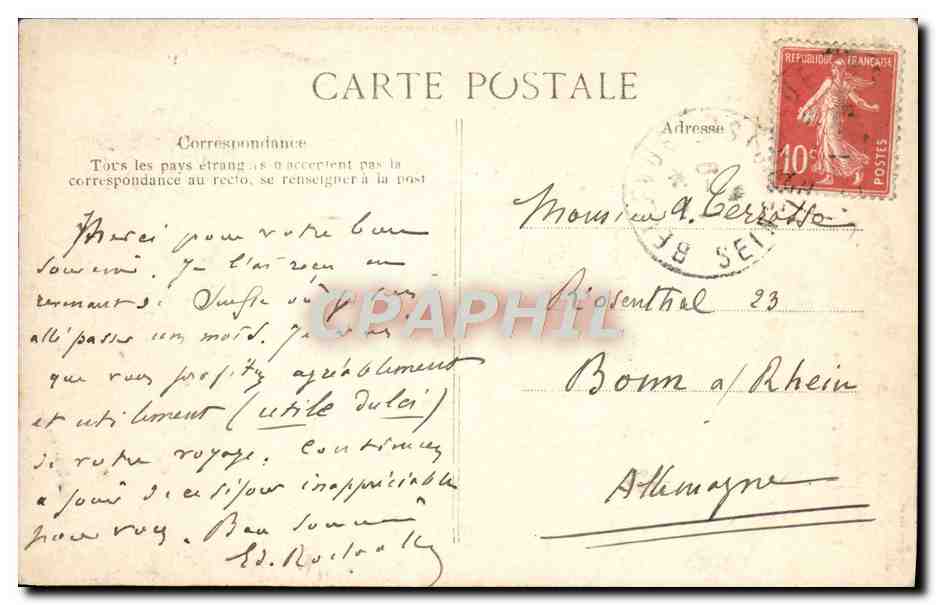 CARTE POSTALE
Correspondance
Tous les pays étrangers n'acceptent pas la
correspondance au recto, se renseigner à la post
Merci pour votre bon
souvenir. Je l'ai reçu en
revenant de où je suis
allé passer un mois. Je vois
que vous profitez agréablement
et utilement (utile dulci)
de votre voyage. Continuez
à jouir de ce séjour inappréciable
pour vous. Bon souvenir
Ed.
Adresse
REPUBLIQUE FRANÇAISE
10c
POSTES
SEINE
Monsieur A.
Rosenthal 23
Bonn a/Rhein
Allemagne
CPAPHIL